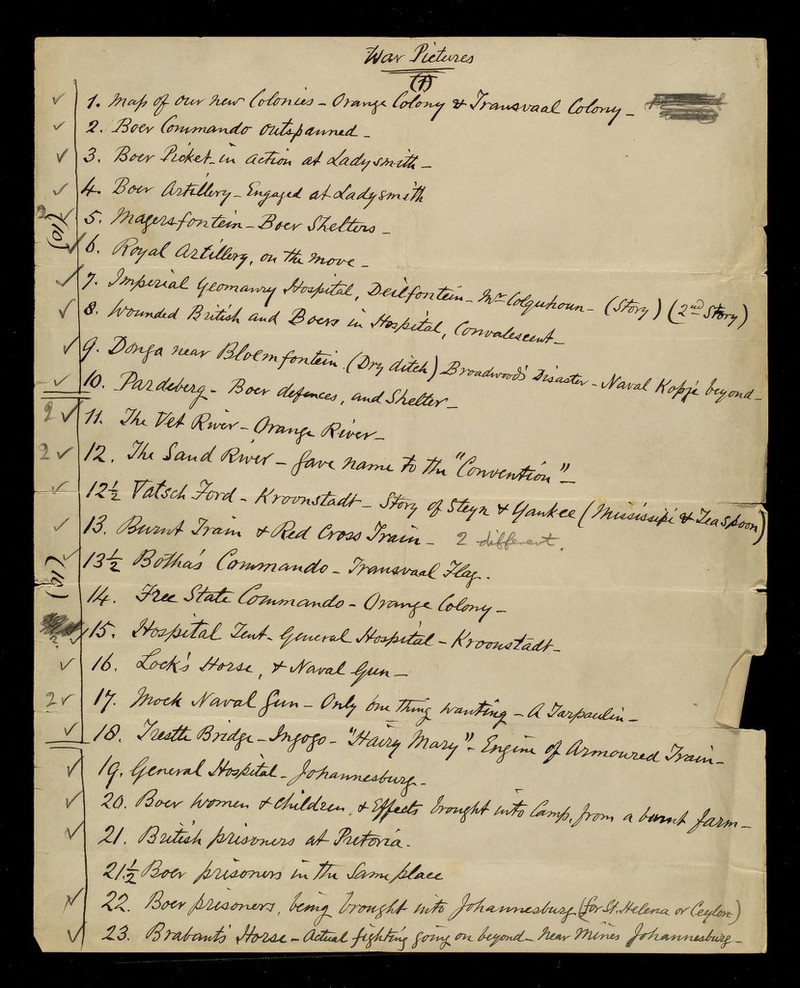 War Pictures
(1)
✓ 1. Map of our new Colonies – Orange Colony & Transvaal Colony –
✓ 2. Boer Commando outspanned –
✓ 3. Boer Picket – in action at Ladysmith –
✓ 4. Boer Artillery – Engaged at Ladysmith
5. Magersfontein – Boer Shelters –
✓ 6. Royal Artillery, on the move –
✓ 7. Imperial Yeomanry Hospital, Deilfontein – Mr Colquhoun – (Story) (2nd Story)
✓ 8. Wounded British and Boers in Hospital, Convalescent –
✓ 9. Donga near Bloemfontein (Dry ditch) Broadwood's Disaster – Naval Kopje beyond –
✓ 10. Pardeberg – Boer defences, and Shelter –
2 ✓ 11. The Vet River – Orange River –
2 ✓ 12. The Sand River – gave name to the "Convention" –
✓ 12½ Vatsch Ford – Kroonstadt – Story of Steyn & Yankee (Mississipi & Teaspoon)
✓ 13. Burnt Train & Red Cross Train – 2 different.
13½ Botha's Commando – Transvaal Flag.
14. Free State Commando – Orange Colony –
15. Hospital Tent – General Hospital – Kroonstadt –
✓ 16. Lock's Horse, & Naval Gun –
2 ✓ 17. Mock Naval Gun – Only one thing wanting – A Tarpaulin –
✓ 18. Trestle Bridge – Ingogo – "Hairy Mary" – Engine of Armoured Train –
✓ 19. General Hospital – Johannesburg –
✓ 20. Boer women & children, & Effects brought into Camp, from a burnt farm –
✓ 21. British prisoners at Pretoria.
21½ Boer prisoners in the same place
✓ 22. Boer prisoners, being brought into Johannesburg (for St. Helena or Ceylon)
✓ 23. Brabant's Horse – Actual fighting going on beyond – near Mines Johannesburg –